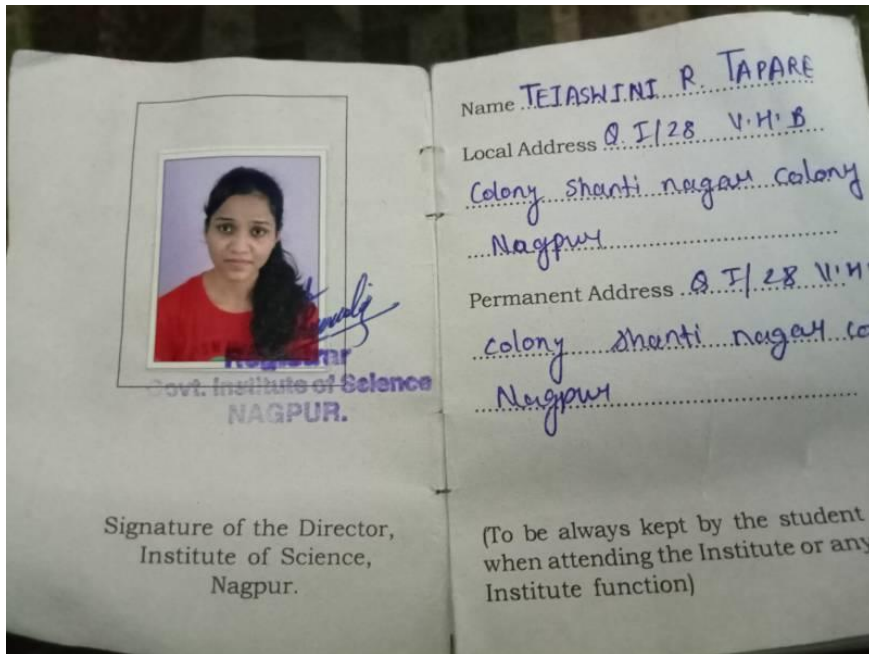 Registrar
Govt. Institute of Science
NAGPUR.
Signature of the Director,
Institute of Science,
Nagpur.
Name TEJASWINI R. TAPARE
Local Address Q. I/28 V.H.B
Colony Shanti nagar Colony
Nagpur
Permanent Address Q I/28 V.H
colony Shanti nagar co
Nagpur
(To be always kept by the student
when attending the Institute or any
Institute function)